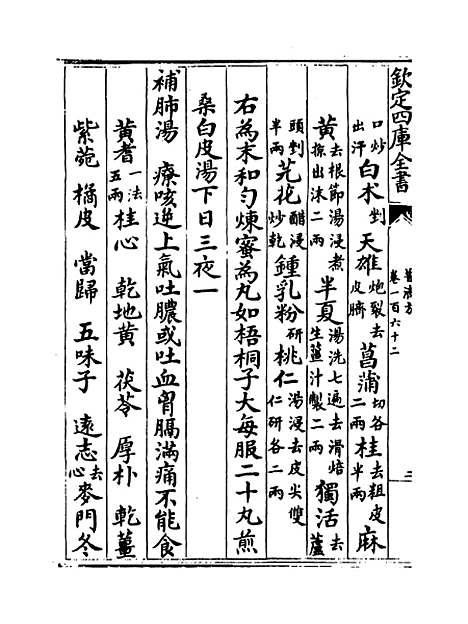 欽定四庫全書
普濟方
卷一百六十二
三
口炒出汗 白朮 剉 天雄 炮裂去皮臍 菖蒲 切各二兩 桂 去粗皮半兩 麻
黄 去根節湯浸煮掠出沫二兩 半夏 湯洗七遍去滑焙生薑汁製二兩 獨活 去蘆
頭剉半兩 芫花 醋浸炒乾 鍾乳粉 研 桃仁 湯浸去皮尖雙仁研各二兩
右為末和勻煉蜜為丸如梧桐子大每服二十丸煎
桑白皮湯下日三夜一
補肺湯 療咳逆上氣吐膿或吐血胷膈滿痛不能食
黄耆 一法五兩 桂心 乾地黄 茯苓 厚朴 乾薑
紫菀 橘皮 當歸 五味子 遠志 去心 麥門冬